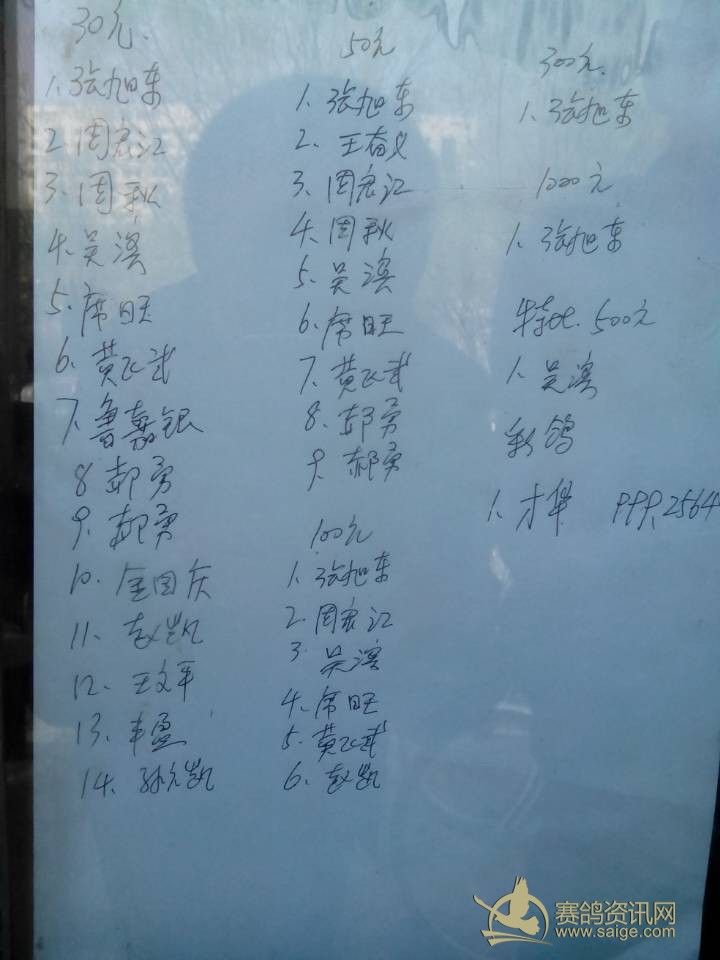 30元.
1.张旭东
2.周宏江
3.周秋
4.吴滨
5.席旺
6.黄飞武
7.鲁嘉银
8 郝勇
9.郝勇
10.金国庆
11.赵凯
12.王文军
13.丰盈
14.孙元凯
50元
1.张旭东
2.王奋义
3.周宏江
4.周秋
5.吴滨
6.席旺
7.黄飞武
8.郝勇
9.郝勇
100元
1.张旭东
2.周宏江
3.吴滨
4.席旺
5.黄飞武
6.赵凯
300元.
1.张旭东
1000元
1.张旭东
特比.500元
1.吴滨
彩鸽
1. 2564
赛鸽资讯网
www.saige.com